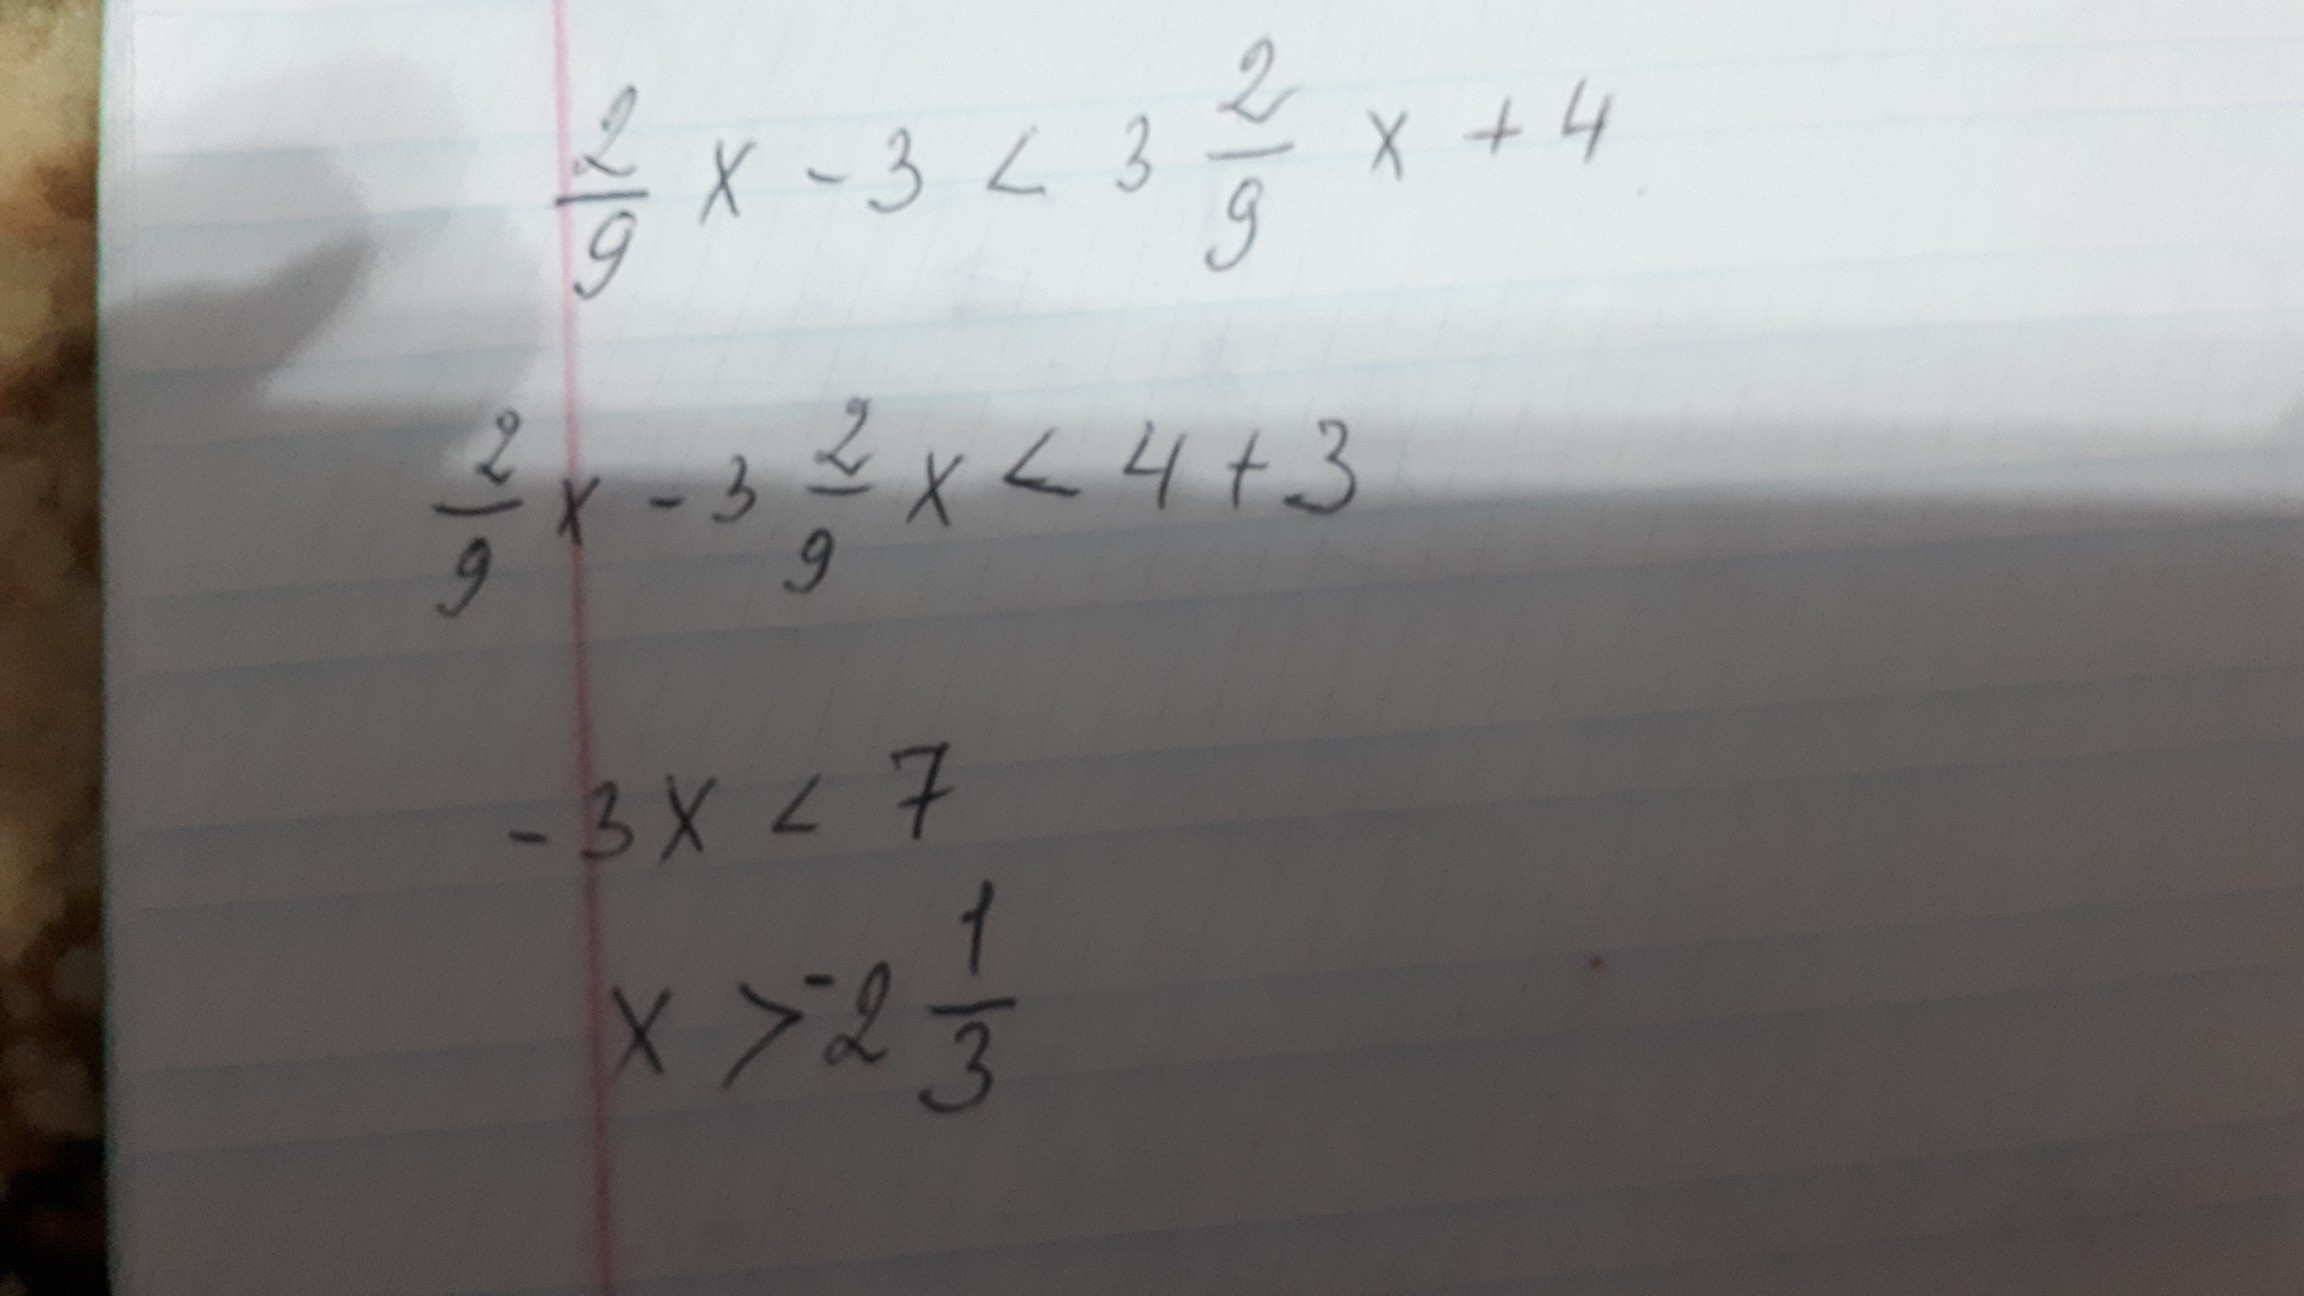 2/9 x - 3 < 3 2/9 x + 4
2/9 x - 3 2/9 x < 4 + 3
- 3x < 7
x > -2 1/3